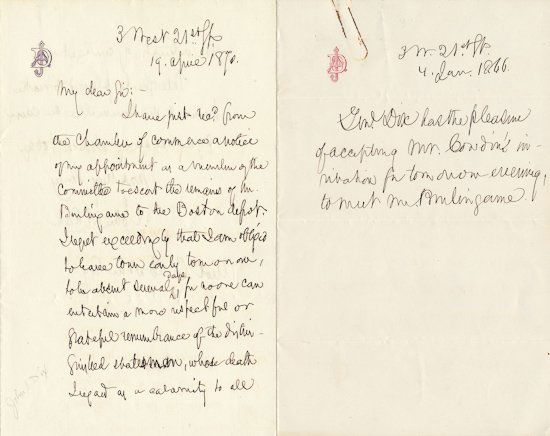 3 West 21st St.
19. April 1870.
My dear Sir:
I have just rec'd from
the Chamber of Commerce a notice
of my appointment as a member of the
Committee to escort the remains of Mr.
Burlingame to the Boston depot.
I regret exceedingly that I am obliged
to leave town early tomorrow,
to be absent several days, for no one can
entertain a more respectful or
grateful remembrance of the distin-
guished statesman, whose death
I regard as a calamity to all
3 W. 21st St.
4. Jan. 1866.
Genl. Dix has the pleasure
of accepting Mr. Cowdin's in-
vitation for tomorrow evening,
to meet Mr. Burlingame